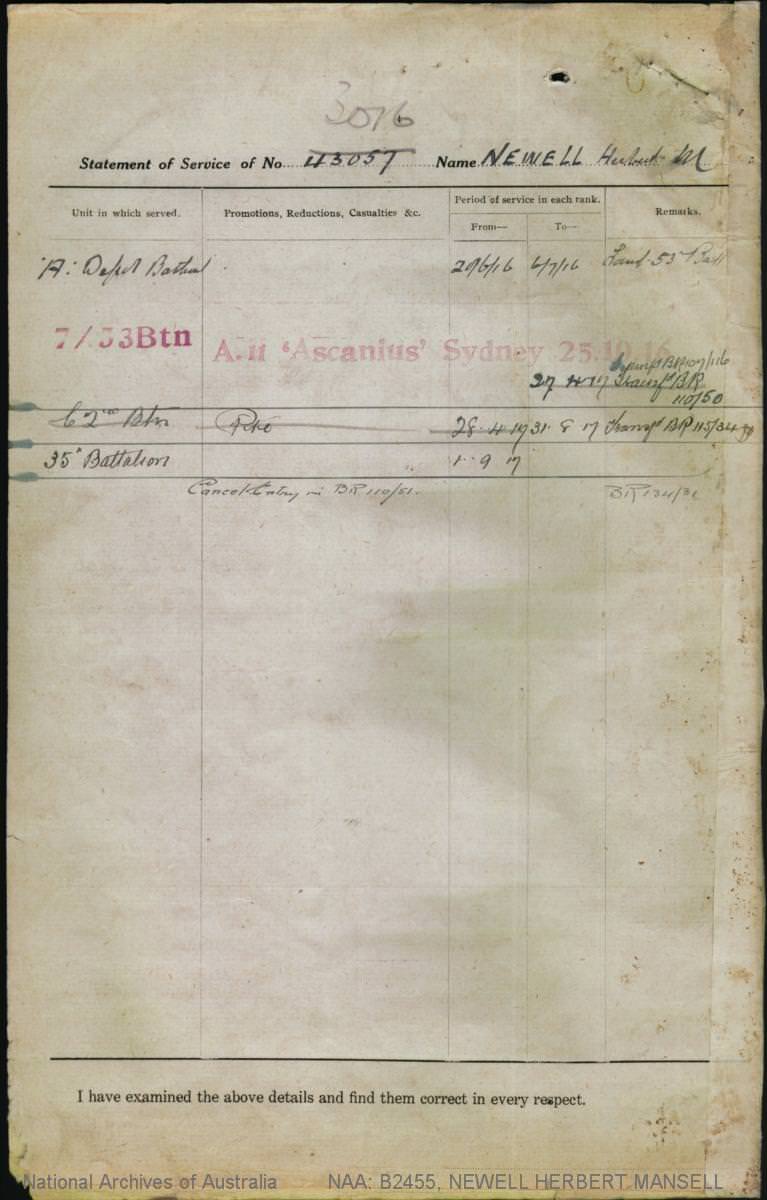 3016
Statement of Service of No. 43057 Name NEWELL Herbert M
Unit in which served. Promotions, Reductions, Casualties &c. Period of service in each rank. Remarks.
From— To—
'A' Depot 6/7/16 53rd Batt
7/53Btn A.11 'Ascanius' Sydney 25.10.16
BR 107/116
27 4 17 Transfd BR
110/50
62nd Btn Pte 28.4.17 31 8 17 Transfd BR 115/34
35th Battalion 1 9 17
Cancel Entry in BR 110/51. BR 134/
I have examined the above details and find them correct in every respect.
National Archives of Australia NAA: B2455, NEWELL HERBERT MANSELL